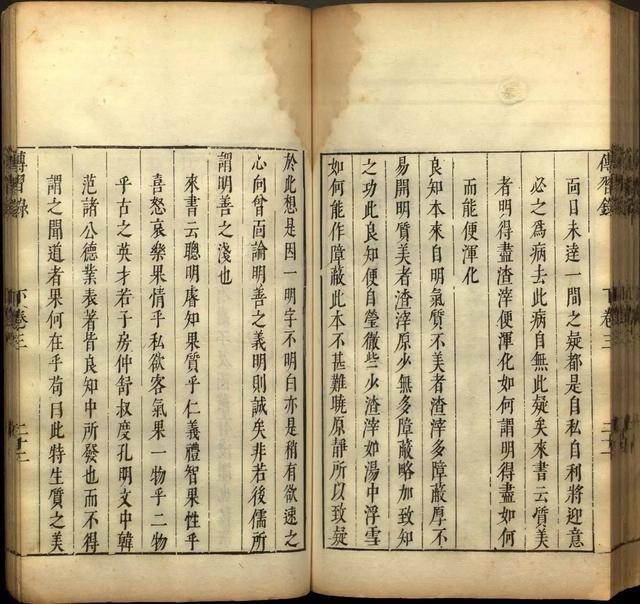 傳習錄
下卷三
二十一
面日未達一間之疑都是自私自利將迎意
必之為病去此病自無此疑矣來書云質美
者明得盡渣滓便渾化如何謂明得盡如何
而能便渾化
良知本來自明氣質不美者渣滓多障蔽厚不
易開明質美者渣滓原少無多障蔽略加致知
之功此良知便自瑩徹些少渣滓如湯中浮雪
如何能作障蔽此本不甚難曉原靜所以致疑
於此想是因一明字不明白亦是稍有欲速之
心向曾面論明善之義明則誠矣非若後儒所
謂明善之淺也
來書云聰明睿知果質乎仁義禮智果性乎
喜怒哀樂果情乎私欲客氣果一物乎二物
乎古之英才若子房仲舒叔度孔明文中韓
范諸公德業表著皆良知中所發也而不得
謂之聞道者果何在乎苟曰此特生質之美
傳習錄
下卷三
二十二